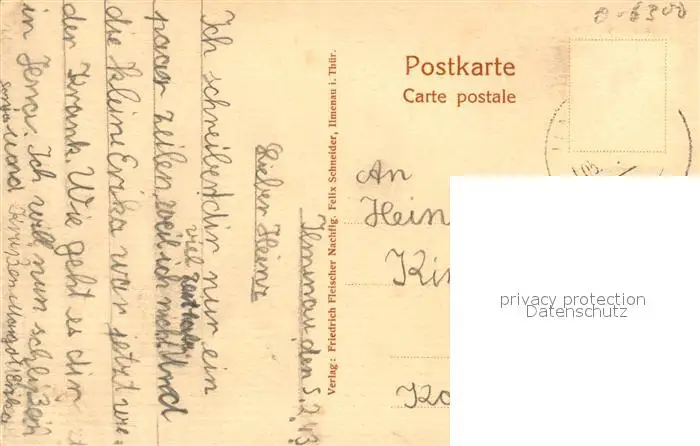 Ilmenau, den 5.2.43.
Lieber Heinz
Ich schreibe dir nur ein
paar zeilen weil ich nicht
viel zeit habe. Und
die kleine Erika war jetzt wie-
der krank. Wie geht es dir
in Jena. Ich will nun schließen
und
Verlag: Friedrich Fleischer Nachflg. Felix Schneider, Ilmenau i. Thür.
0-6300
Postkarte
Carte postale
An
Hein
Ki
Ko
privacy protection
Datenschutz